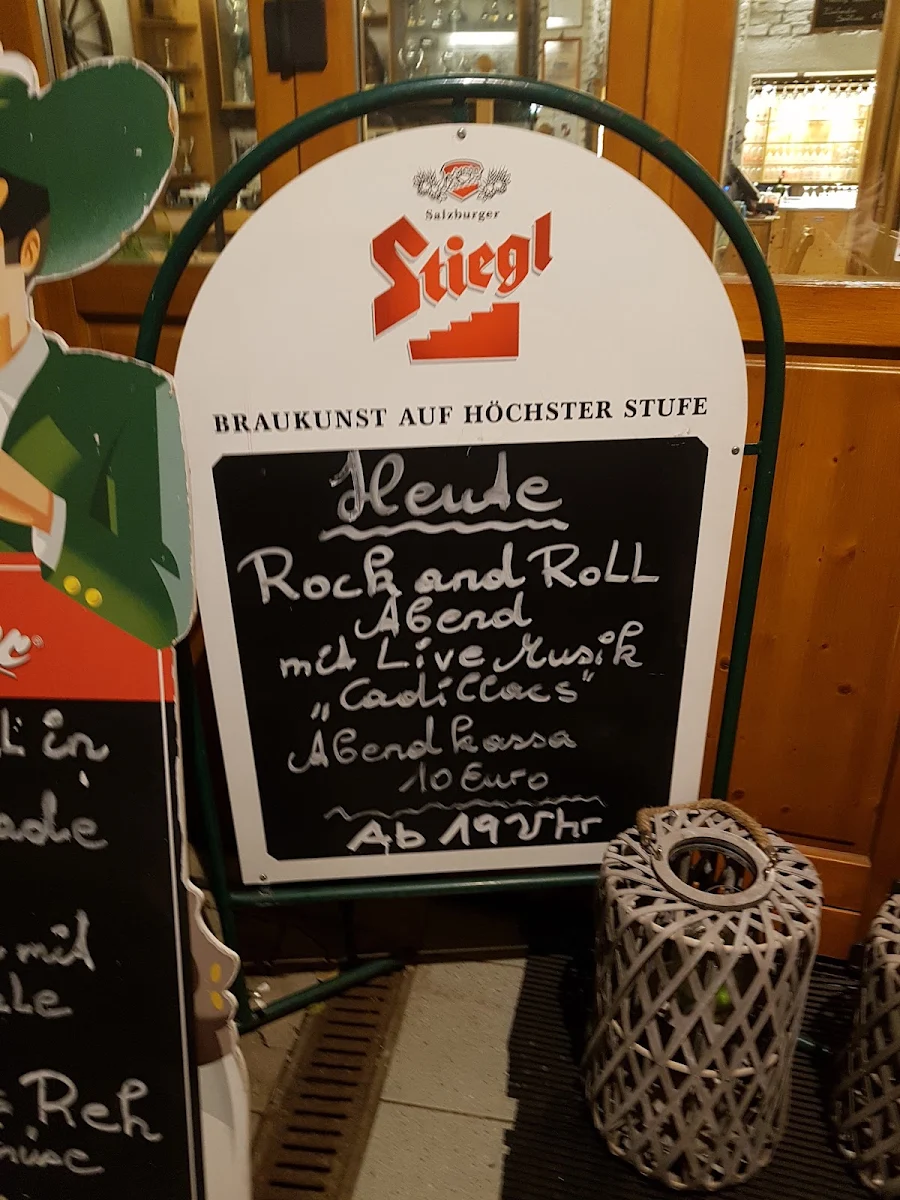 Salzburger
Stiegl
BRAUKUNST AUF HÖCHSTER STUFE
Heute
Rock and Roll
Abend
mit Live Musik
„Cadillacs"
Abendkassa
10 Euro
Ab 19 Uhr
in
mit
Reh